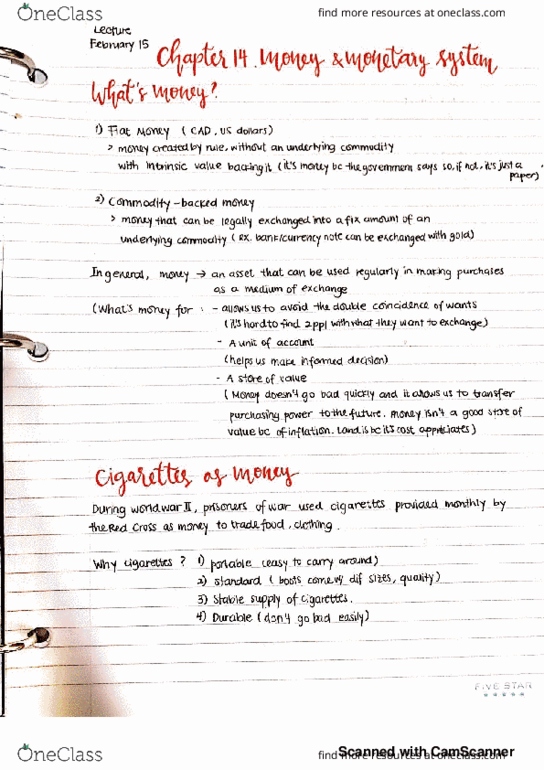 OneClass find more resources at oneclass.com
Lecture
February 15
Chapter 14. Money & monetary system
What's money?
1) Fiat Money ( CAD, US dollars)
> money created by rule, without an underlying commodity
with intrinsic value backing it (it's money bc the government says so, if not, it's just a
paper)
2) Commodity - backed money
> money that can be legally exchanged into a fix amount of an
underlying commodity ( ex. bank/currency note can be exchanged with gold)
In general, money → an asset that can be used regularly in making purchases
as a medium of exchange
(What's money for : - allows us to avoid the double coincidence of wants
(it's hard to find 2 ppl with what they want to exchange)
- A unit of account
(helps us make informed decision)
- A store of value
( Money doesn't go bad quickly and it allows us to transfer
purchasing power to the future. money isn't a good store of
value bc of inflation. Land is bc it's cost appreciates)
Cigarettes as money
During world war II, prisoners of war used cigarettes provided monthly by
the Red Cross as money to trade food, clothing.
Why cigarettes ? 1) portable (easy to carry around)
2) standard ( boots come in dif sizes, quality)
3) Stable supply of cigarettes.
4) Durable (don't go bad easily)
FIVE STAR
OneClass find more resources at oneclass.com
Scanned with CamScanner